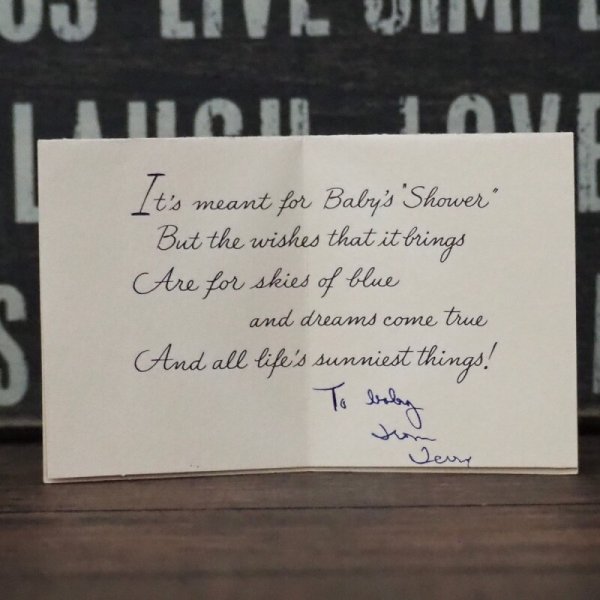 LIVE SIMPL
LAUGH LOVE
S
It's meant for Baby's "Shower"
But the wishes that it brings
Are for skies of blue
and dreams come true
And all life's sunniest things!
To baby
from
Terry